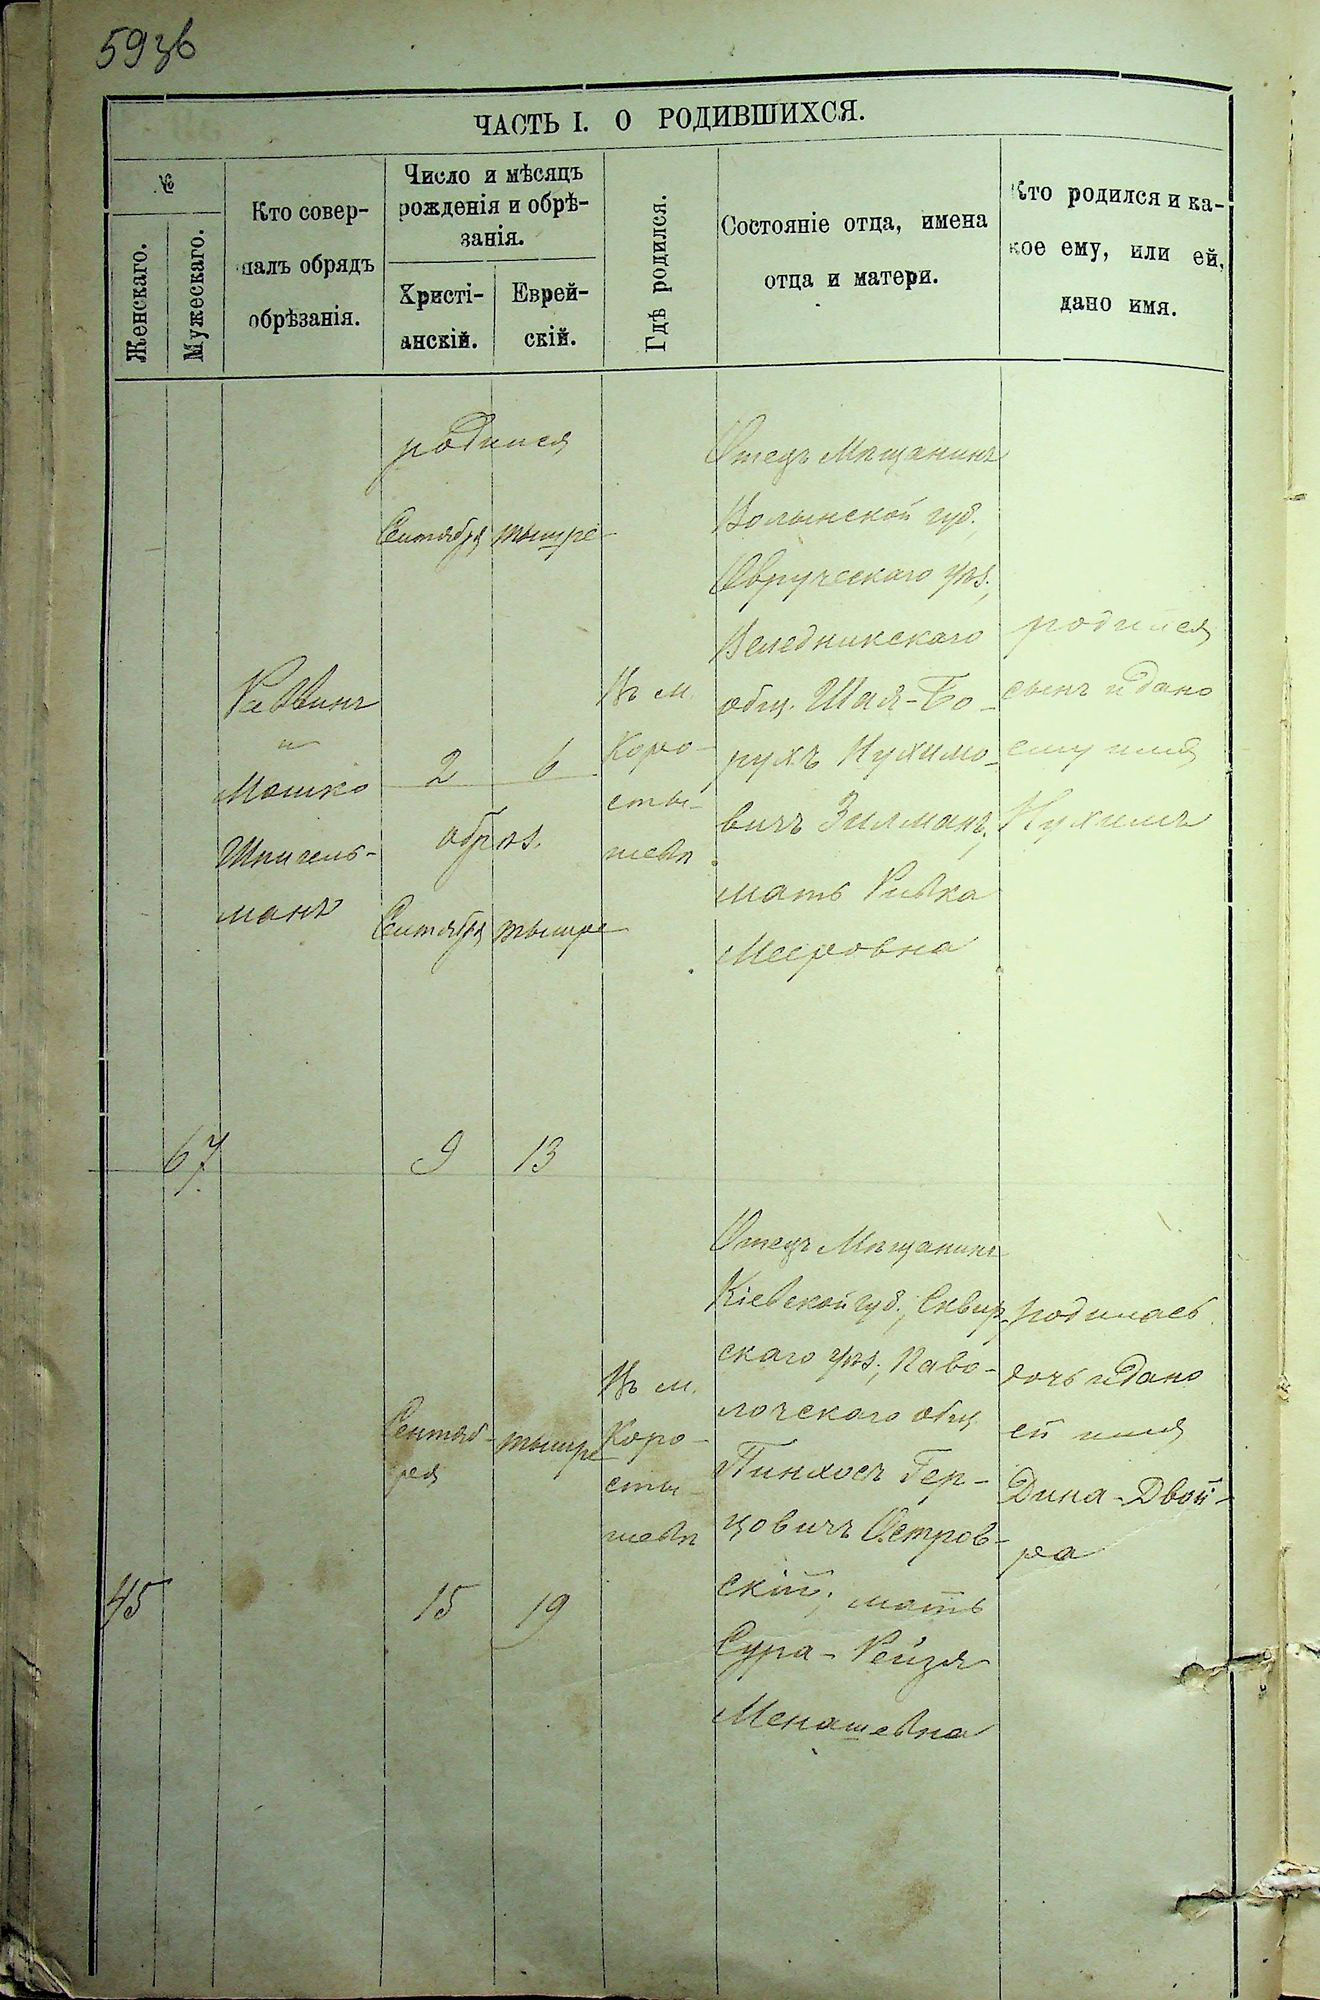 593б
ЧАСТЬ I. О РОДИВШИХСЯ.
№
Женскаго.
Мужескаго.
Кто совер-
шалъ обрядъ
обрѣзанія.
Число и мѣсяцъ
рожденія и обрѣ-
занія.
Христі-
анскій.
Еврей-
скій.
Гдѣ родился.
Состояніе отца, имена
отца и матери.
Кто родился и ка-
кое ему, или ей,
дано имя.
67
Раввинъ
и
Мошко
Шпигель-
манъ
родился
Сентября тышре
2 6
обрѣз.
Сентября тышре
9 13
Въ м.
Коро-
сты-
шевѣ
Отецъ Мѣщанинъ
Волынской губ.,
Овручскаго уѣз.,
Веледникскаго
общ. Шая-Бо-
рухъ Нухимо-
вичъ Зилманъ,
мать Ривка
Мееровна
родился
сынъ и дано
ему имя
Нухимъ
45
Сентяб-
ря
тышре
15 19
Въ м.
Коро-
сты-
шевѣ
Отецъ Мѣщанинъ
Кіевской губ., Сквир-
скаго уѣз., Паво-
лочскаго общ.
Пинхосъ Гер-
цовичъ Островскій-
скій, мать
Сура-Рейзя
Менашевна
родилась
дочь и дано
ей имя
Дина-Двой-
ра